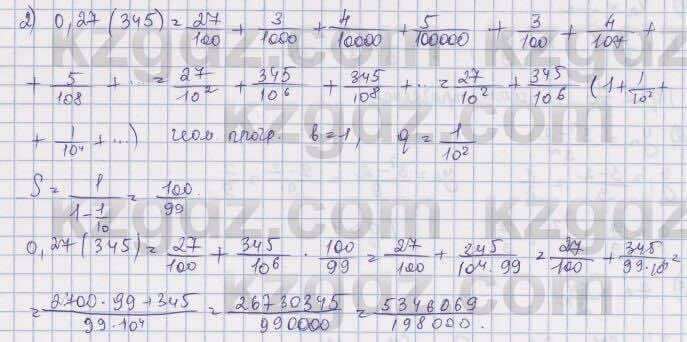 2) 0,27(345) = 27/100 + 3/1000 + 4/10000 + 5/100000 + 3/100 + 4/107 +
+ 5/108 + ... = 27/10² + 345/10⁶ + 345/10⁸ + ... = 27/10² + 345/10⁶ (1 + 1/10² +
+ 1/10⁴ + ...) геом прогр. b = 1, q = 1/10²
S = 1/(1 - 1/10) = 100/99.
0,27(345) = 27/100 + 345/10⁶ · 100/99 = 27/100 + 345/(10⁴ · 99) = 27/100 + 345/(99 · 10⁴) =
= (2700 · 99 + 345)/(99 · 10⁴) = 26730345/990000 = 5346069/198000.
kzgdz.com